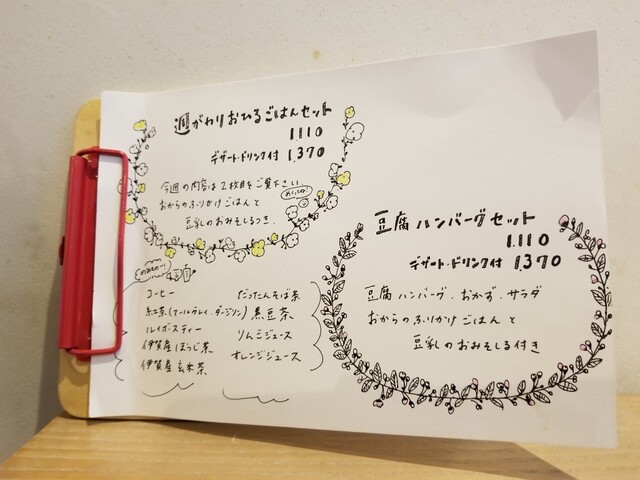 週がわりおひるごはんセット
1,110
デザート・ドリンク付 1,370
今週の内容は2枚目をご覧下さい
おからのふりかけごはんと
豆乳のおみそしるつき。
コーヒー
紅茶(アールグレイ・ダージリン)
ルイボスティー
伊賀産ほうじ茶
伊賀産玄米茶
だったんそば茶
黒豆茶
りんごジュース
オレンジジュース
豆腐ハンバーグセット
1,110
デザート・ドリンク付 1,370
豆腐ハンバーグ．おかず．サラダ
おからのふりかけごはんと
豆乳のおみそしる付き